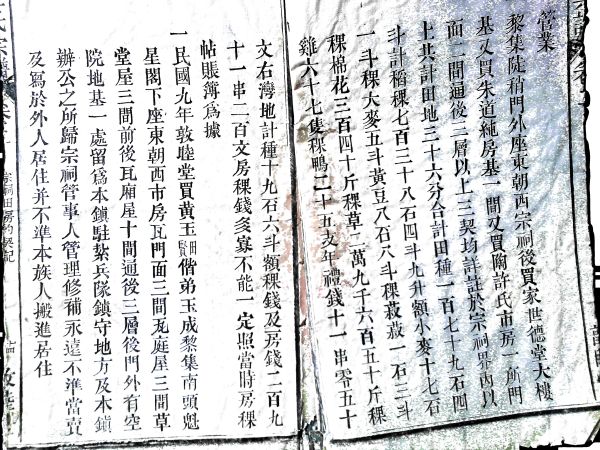 營業
黎集陡稍門外座東朝西宗祠後買家世德堂大樓
基又買朱道純房基一間又買陶許氏市房一所門
面二間通後二層以上三契均詳註於宗祠界內以
上共計田地三十六分合計田種一百七十九石四
斗計稻稞七百三十八石四斗九升額小麥十七石
一斗稞大麥五斗黃豆八石八斗稞菽菽一石三斗
稞棉花三百四十斤稞草二萬九千六百五十斤稞
雞六十七隻稞鴨二十五支年禮錢十一串零五十
文右灣地計種十九石六斗額稞錢及房錢二百九
十一串二百文房稞錢多寡不能一定照當時房稞
帖賬簿為據
一民國九年敦睦堂買黃玉田賢偕弟玉成黎集南頭魁
星閣下座東朝西市房瓦門面三間瓦庭屋三間草
堂屋三間前後瓦廠屋十間通後三層後門外有空
院地基一處留爲本鎮駐紮兵隊鎮守地方及本鎮
辦公之所歸宗祠管事人管理修補永遠不準當賣
及寫於外人居住並不準本族人搬進居住
宗祠田房約契記
敦睦